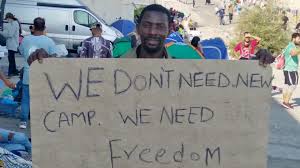 WE DON'T NEED NEW
CAMP. WE NEED
Freedom